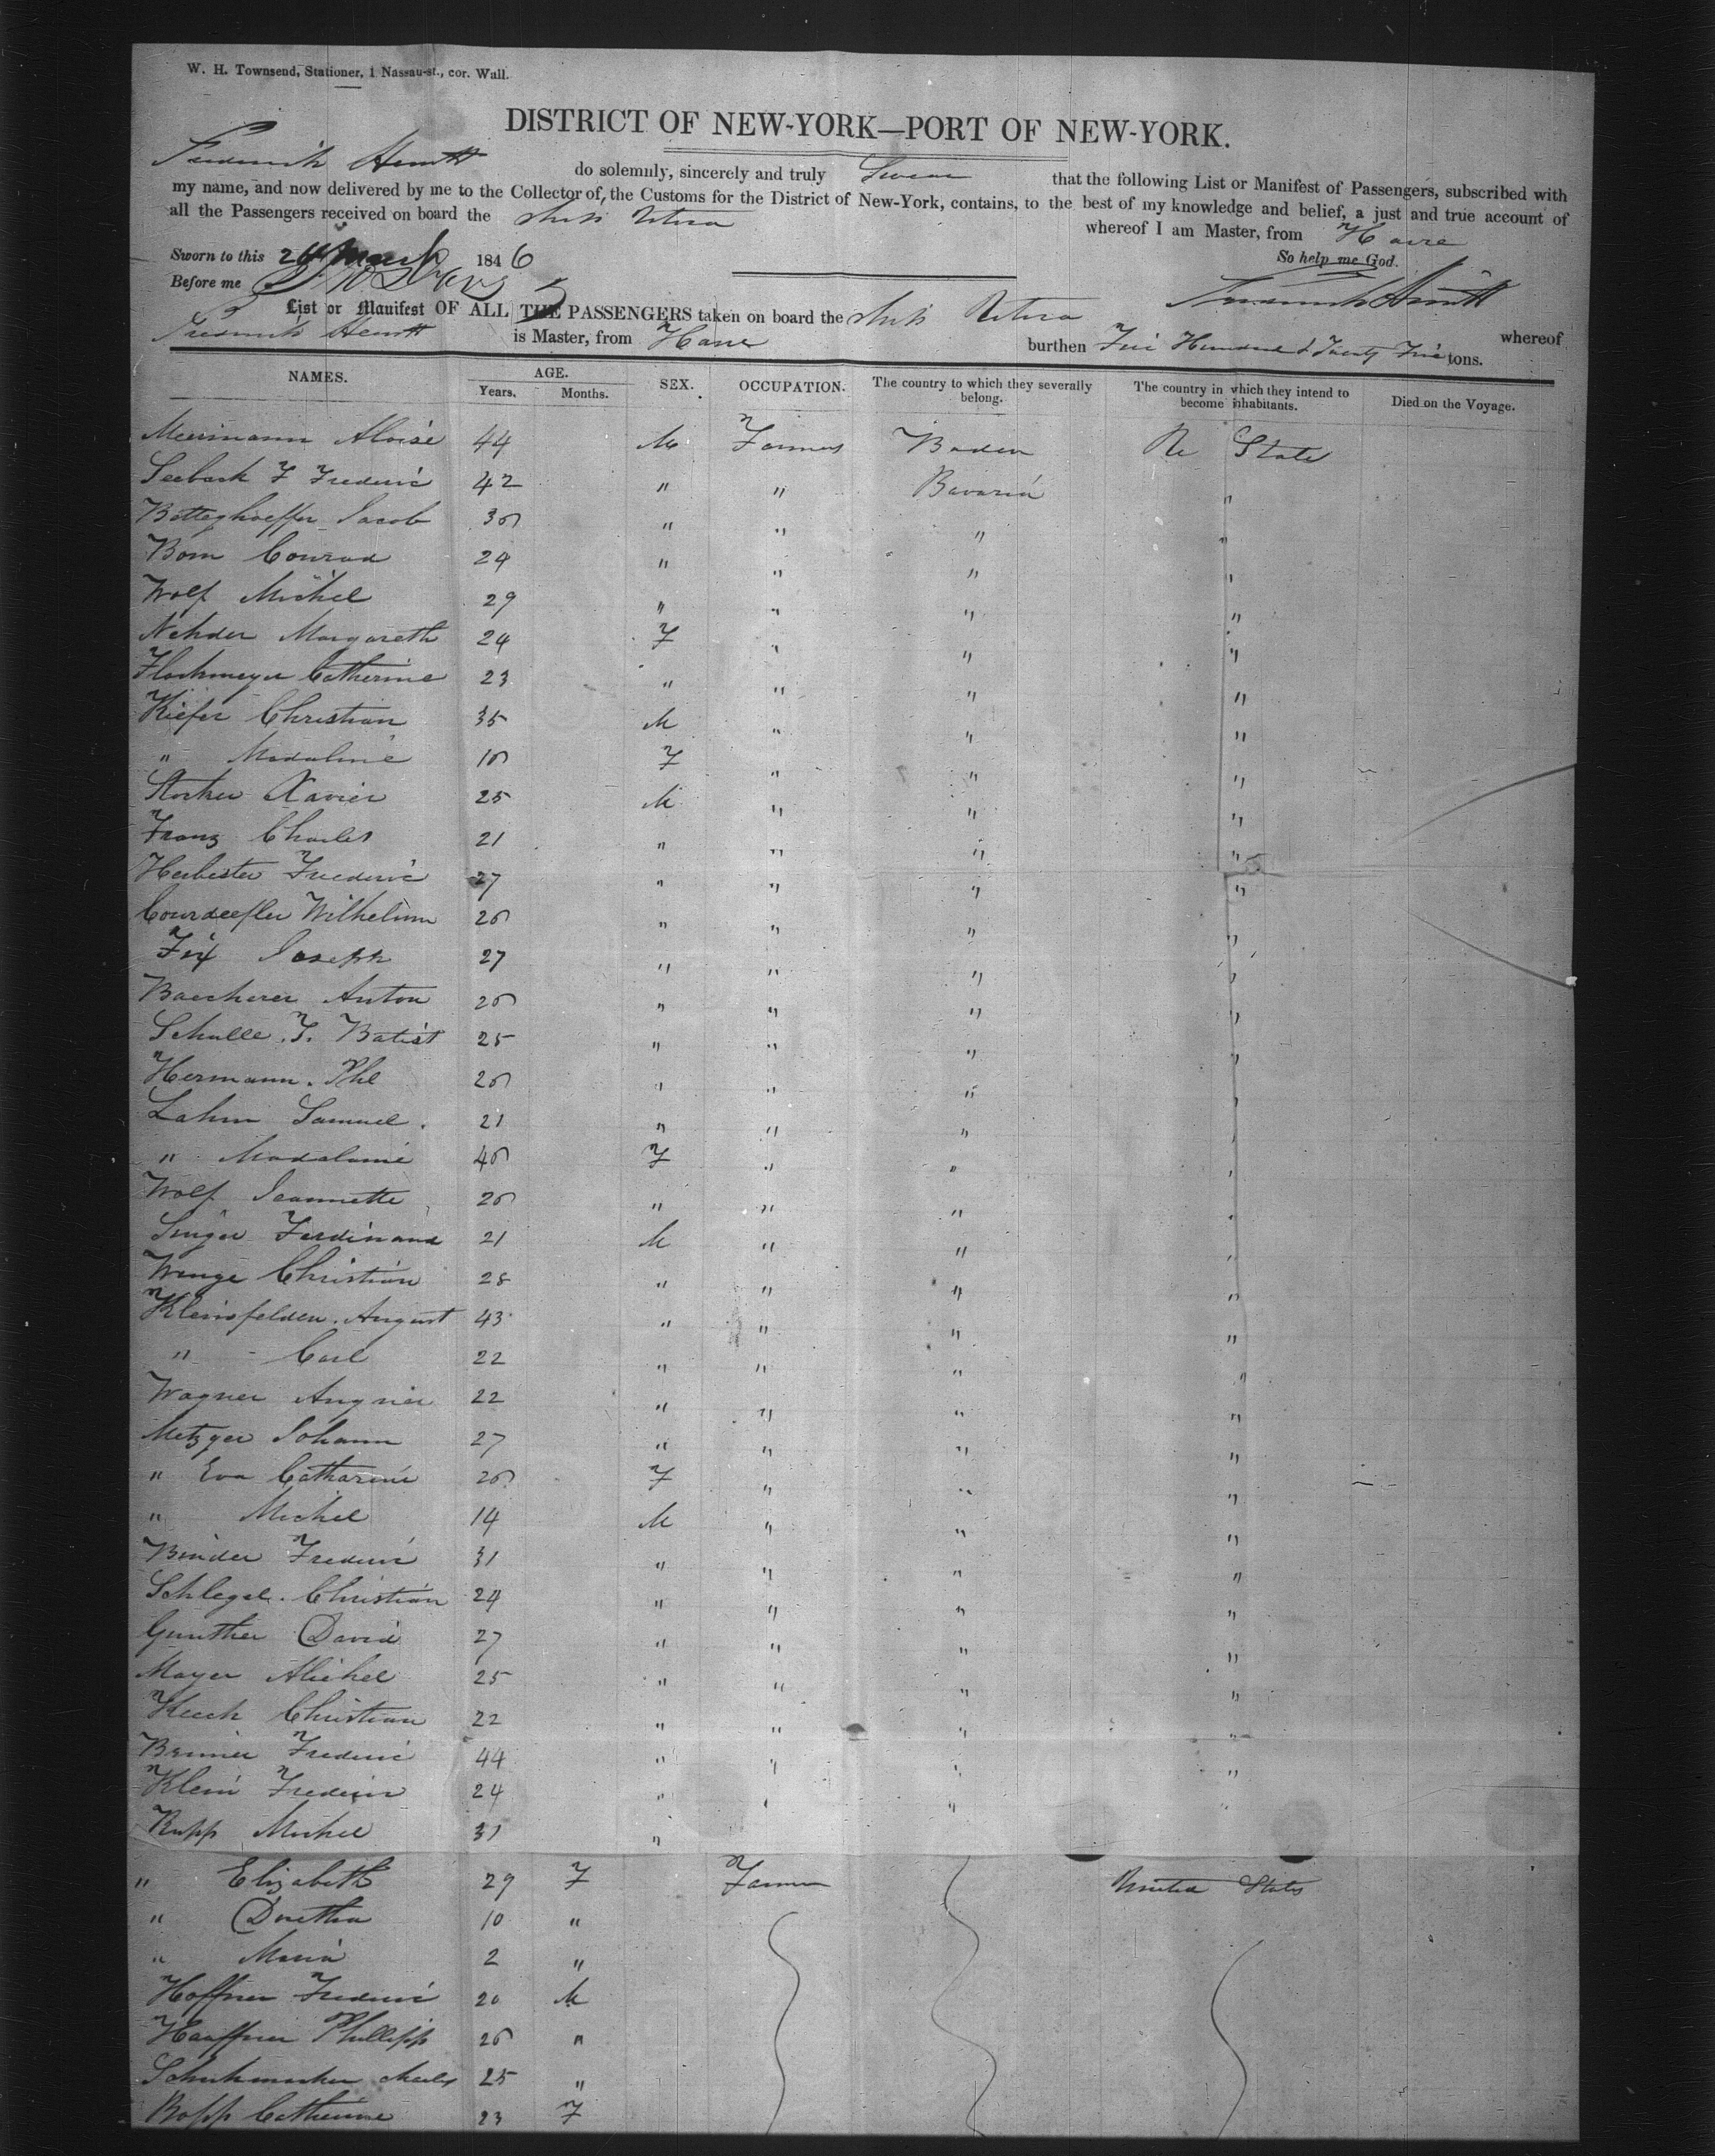 W. H. Townsend, Stationer, 1 Nassau-st., cor. Wall.
DISTRICT OF NEW-YORK—PORT OF NEW-YORK.
Frederick Hewitt do solemnly, sincerely and truly Swear that the following List or Manifest of Passengers, subscribed with
my name, and now delivered by me to the Collector of the Customs for the District of New-York, contains, to the best of my knowledge and belief, a just and true account of
all the Passengers received on board the Ship Utica whereof I am Master, from Havre
Sworn to this March 1846 So help me God.
Before me Frederick Hewitt
List or Manifest OF ALL THE PASSENGERS taken on board the Ship Utica whereof
Frederick Hewitt is Master, from Havre burthen Five Hundred & Twenty Five tons.
NAMES. AGE. SEX. OCCUPATION. The country to which they severally belong. The country in which they intend to become inhabitants. Died on the Voyage.
Years. Months.
Aloise 44 M Farmer Baden State
Frederic 42 " " Bavaria "
Jacob " " " "
Born Conrad 24 " " " "
Wolf Michel 29 " " " "
Margareth 24 F " " "
Catherine 23 " " " "
Kiefer Christian 35 M " " "
" Madaline F " " "
Xavier 25 M " " "
Franz Charles 21 " " " "
Frederic 27 " " " "
Wilhelm 26 " " " "
Fix Joseph 27 " " " "
Baecherer Anton 26 " " " "
Schulle J. Batist 25 " " " "
Hermann Phl 26 " " " "
Lahm Samuel 21 " " " "
" Madalaine F " " "
Wolf Jeannette 26 " " " "
Ferdinand 21 M " " "
Wenge Christian 28 " " " "
Kleinsfelden August 43 " " " "
" Carl 22 " " " "
Wagner 22 " " " "
Metzger Johann 27 " " " "
" Eva Catharine 26 F " " "
" Michel 14 M " " "
Binder Frederic 31 " " " "
Schlegel Christian 24 " " " "
Gunther David 27 " " " "
Mayer Michel 25 " " " "
Christian 22 " " " "
Frederic 44 " " " "
Klein Frederic 24 " " " "
Rupp Michel 31 "
" Elizabeth 29 F Farmer United States
" Dorethea 10 "
" Maria 2 "
Hoffner Frederic 20 M
Hauffner Phillipp 26 "
Schuhmacher Charles 25 "
Bopp Catherine 23 F